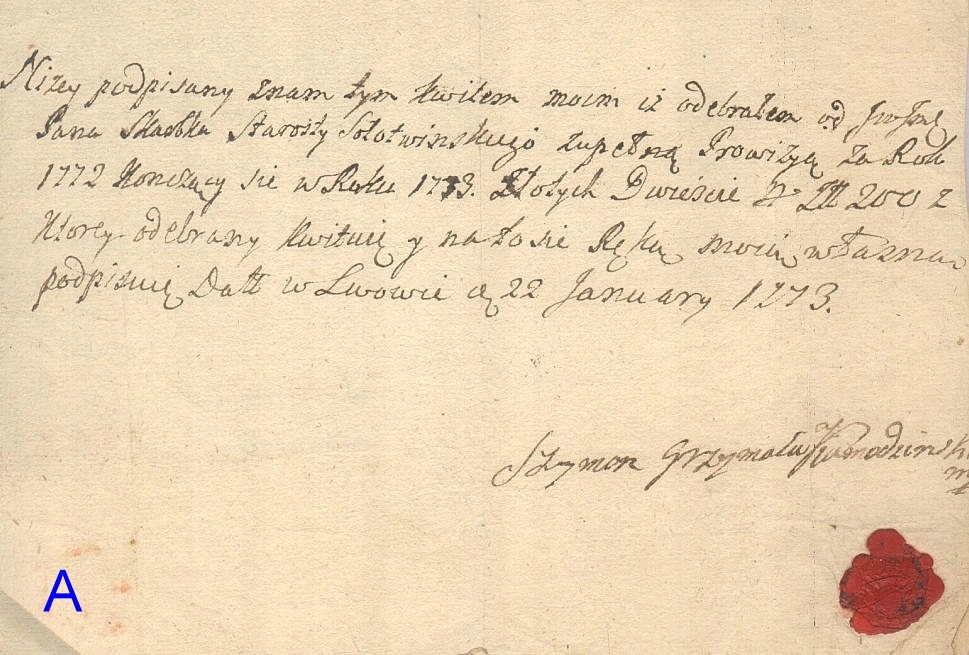 Niżey podpisany znam tym kwitem moim iż odebrałem od
Pana Skarbka Starosty Sołotwinskiego zupełną Prowizyą za Rok
1772 Kończący się w Roku 1773. Złotych Dwieście 200 z
Ktorey odebrany kwituię y na to się Ręką moią własną
podpisuię Datt w Lwowie d 22 January 1773.
Szymon Grzymała
A